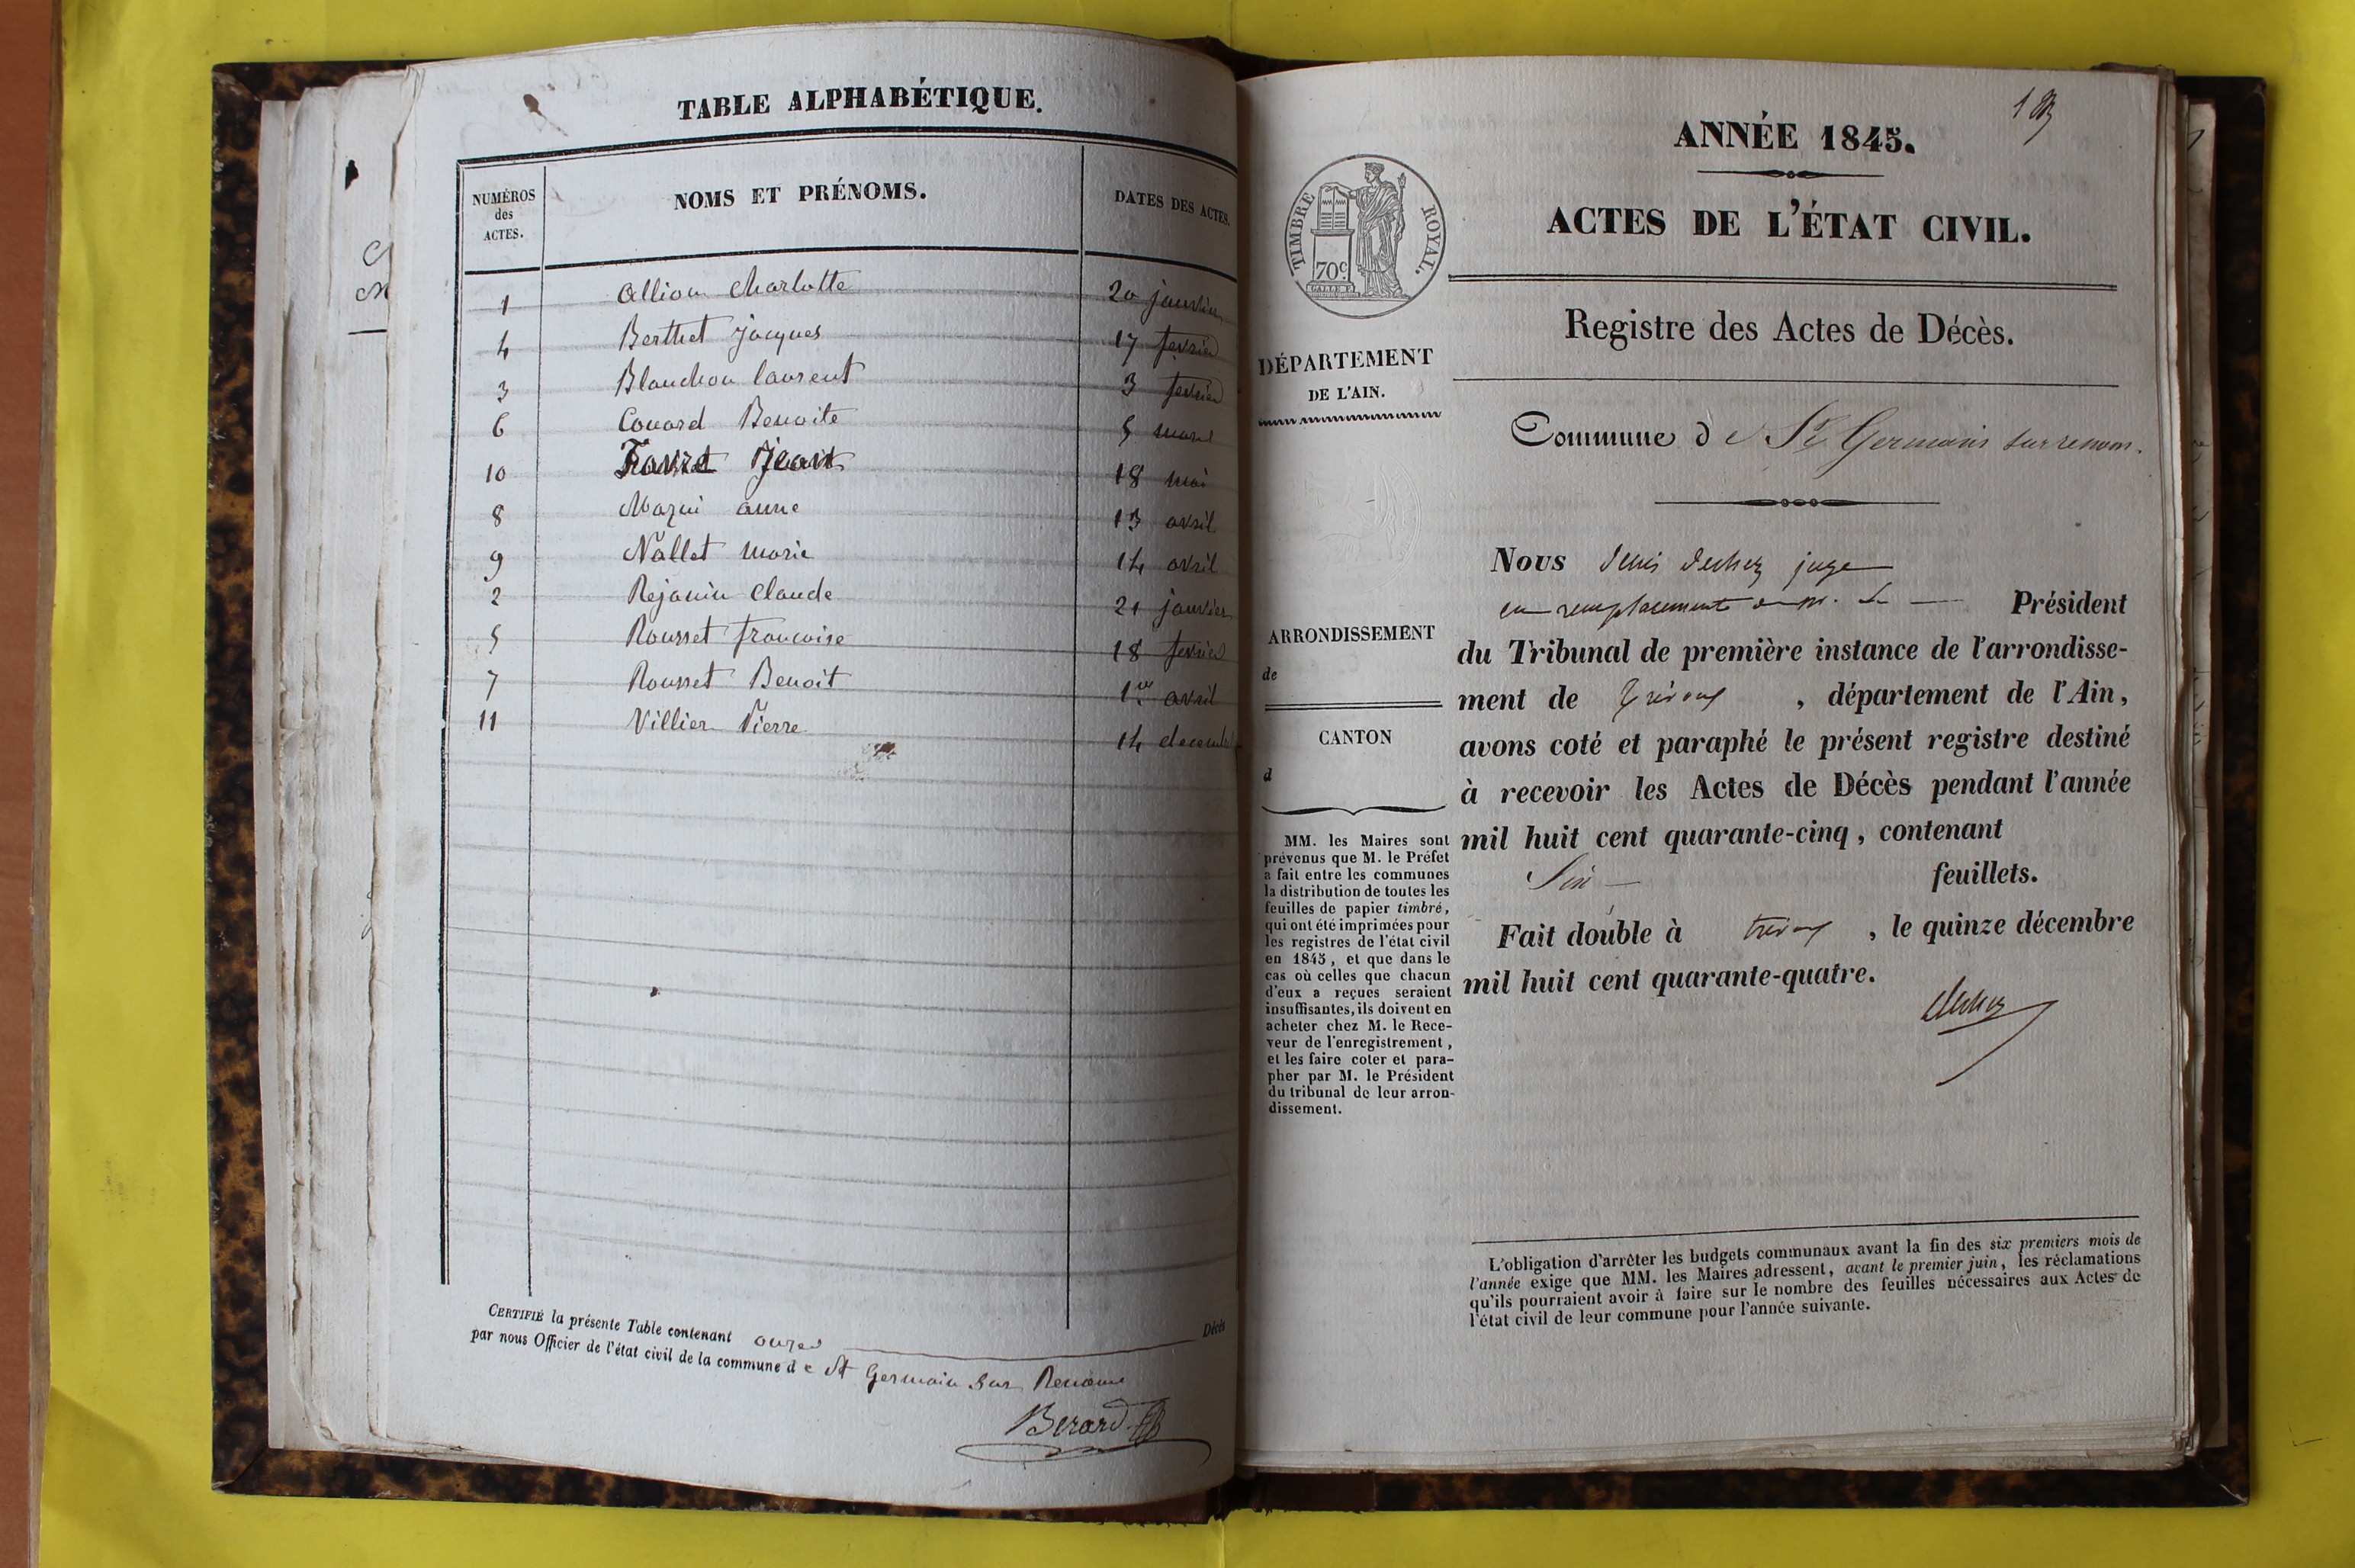 TABLE ALPHABÉTIQUE.
NUMÉROS des ACTES. NOMS ET PRÉNOMS. DATES DES ACTES.
1 Allion Charlotte 20 janvier
4 Berthet Jacques 17 fevrier
3 Blanchon laurent 3 fevrier
6 Couard Benoite 5 mars
10 Favret Jean 18 mai
8 Mazui anne 13 avril
9 Nallet marie 14 avril
2 Rejanin Claude 21 janvier
5 Rousset francoise 18 fevrier
7 Rousset Benoit 1er avril
11 Villier Pierre 14 decembre
CERTIFIÉ la présente Table contenant onze Décès
par nous Officier de l'état civil de la commune de St Germain sur Renom
Berard
ANNÉE 1845.
ACTES DE L'ÉTAT CIVIL.
TIMBRE ROYAL.
70c
Registre des Actes de Décès.
DÉPARTEMENT
DE L'AIN.
Commune de St Germain sur renom.
ARRONDISSEMENT
de
CANTON
d
MM. les Maires sont
prévenus que M. le Préfet
a fait entre les communes
la distribution de toutes les
feuilles de papier timbré,
qui ont été imprimées pour
les registres de l'état civil
en 1845, et que dans le
cas où celles que chacun
d'eux a reçues seraient
insuffisantes, ils doivent en
acheter chez M. le Rece-
veur de l'enregistrement,
et les faire coter et para-
pher par M. le Président
du tribunal de leur arron-
dissement.
Nous juge
en remplacement de M. le Président
du Tribunal de première instance de l'arrondisse-
ment de trévoux, département de l'Ain,
avons coté et paraphé le présent registre destiné
à recevoir les Actes de Décès pendant l'année
mil huit cent quarante-cinq, contenant
Six feuillets.
Fait double à trévoux, le quinze décembre
mil huit cent quarante-quatre.
L'obligation d'arrêter les budgets communaux avant la fin des six premiers mois de
l'année exige que MM. les Maires adressent, avant le premier juin, les réclamations
qu'ils pourraient avoir à faire sur le nombre des feuilles nécessaires aux Actes de
l'état civil de leur commune pour l'année suivante.